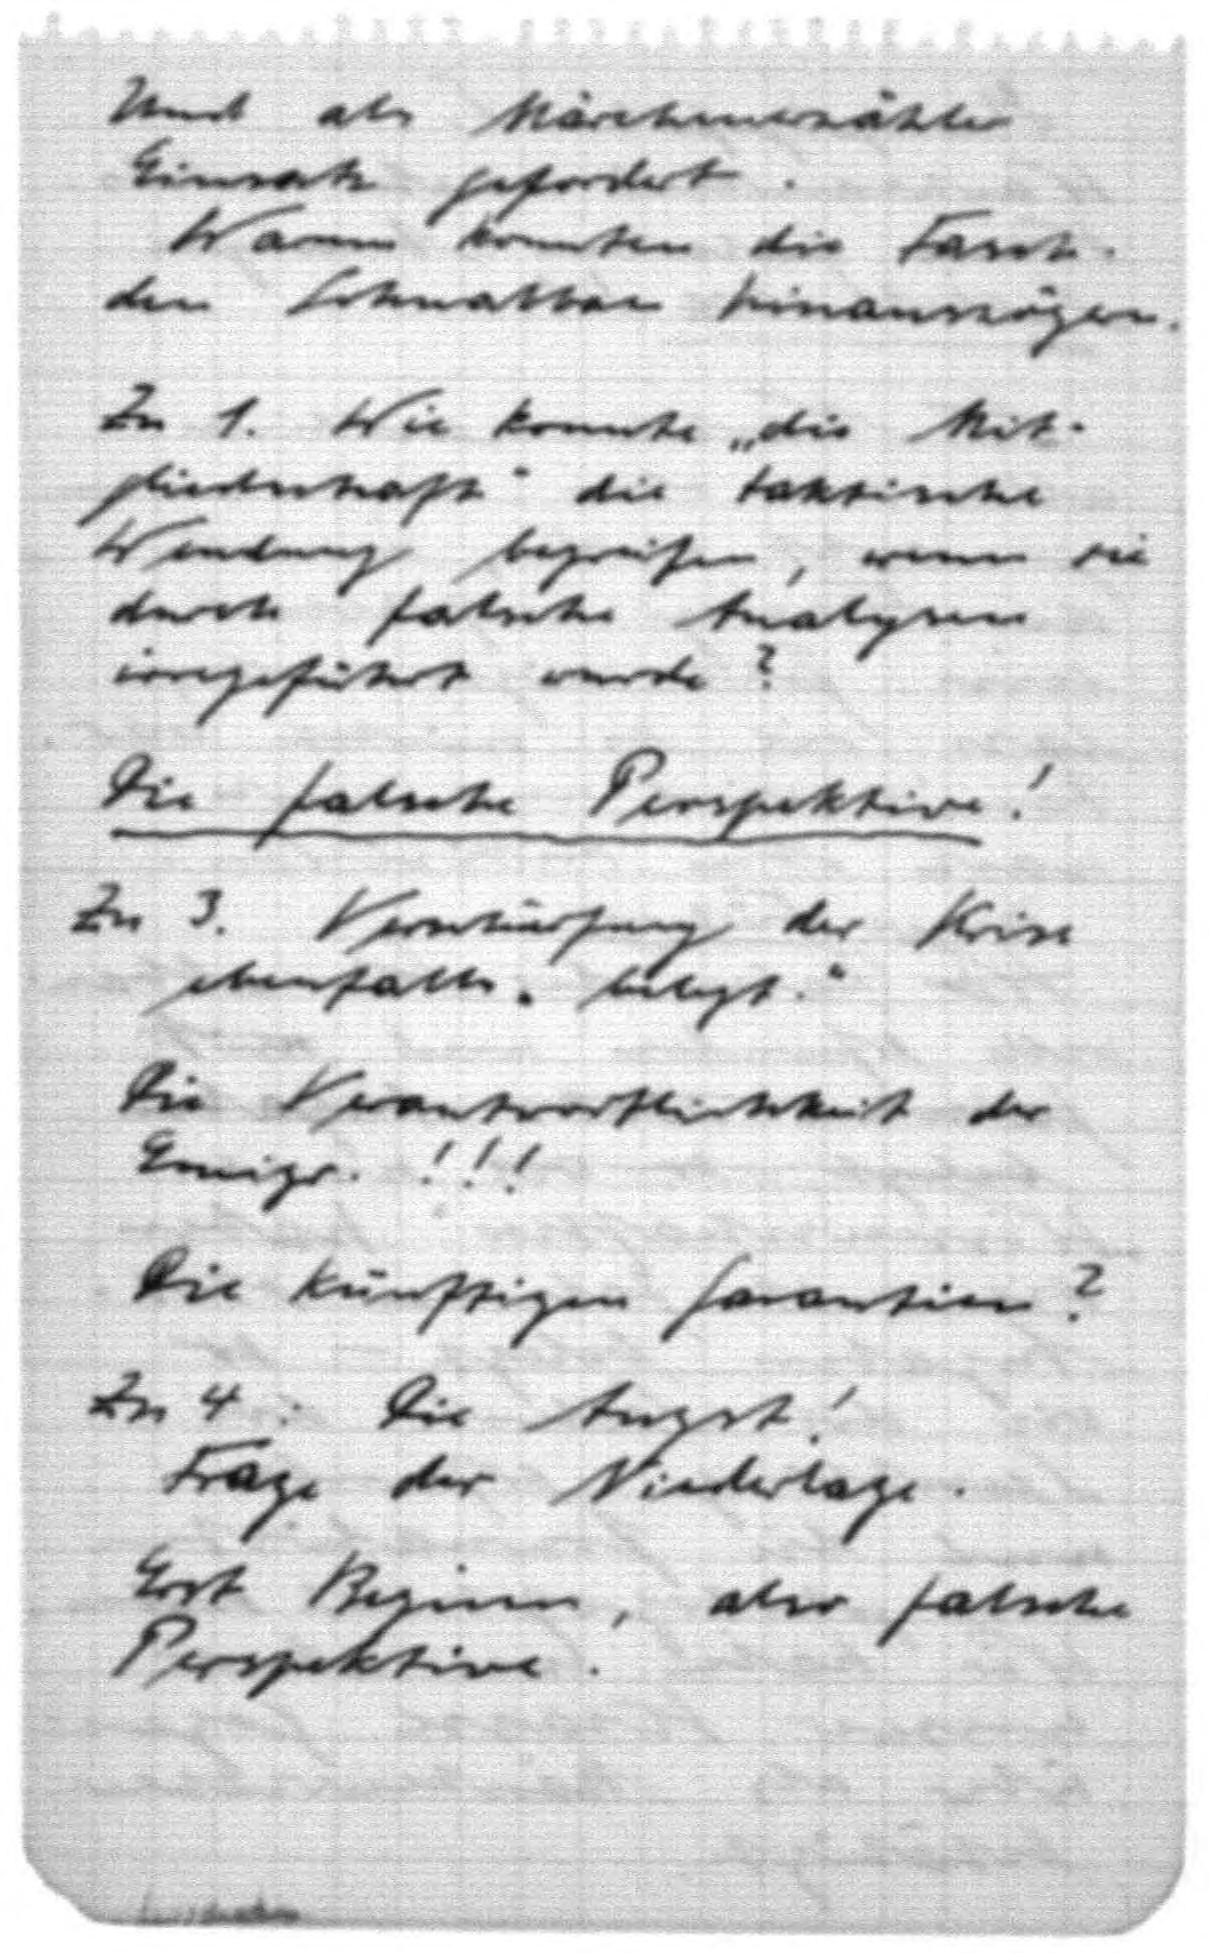 Und als Märchenerzähler
Einsatz gefordert.
Warum konnten die Fasch.
den hinauszögern.
Zu 1. Wie konnte „die Mit-
gliedschaft" die taktische
Wendung begreifen, wenn sie
durch falsche Analysen
irregeführt wurde?
Die falsche Perspektive!
Zu 3. Verschärfung der Krise
ebenfalls „belegt."
Die Verantwortlichkeit der
Emigr. !!!
Die künftigen Garantien?
Zu 4: Die Angst!
Frage der Niederlage.
Erst Beginn, also falsche
Perspektive.